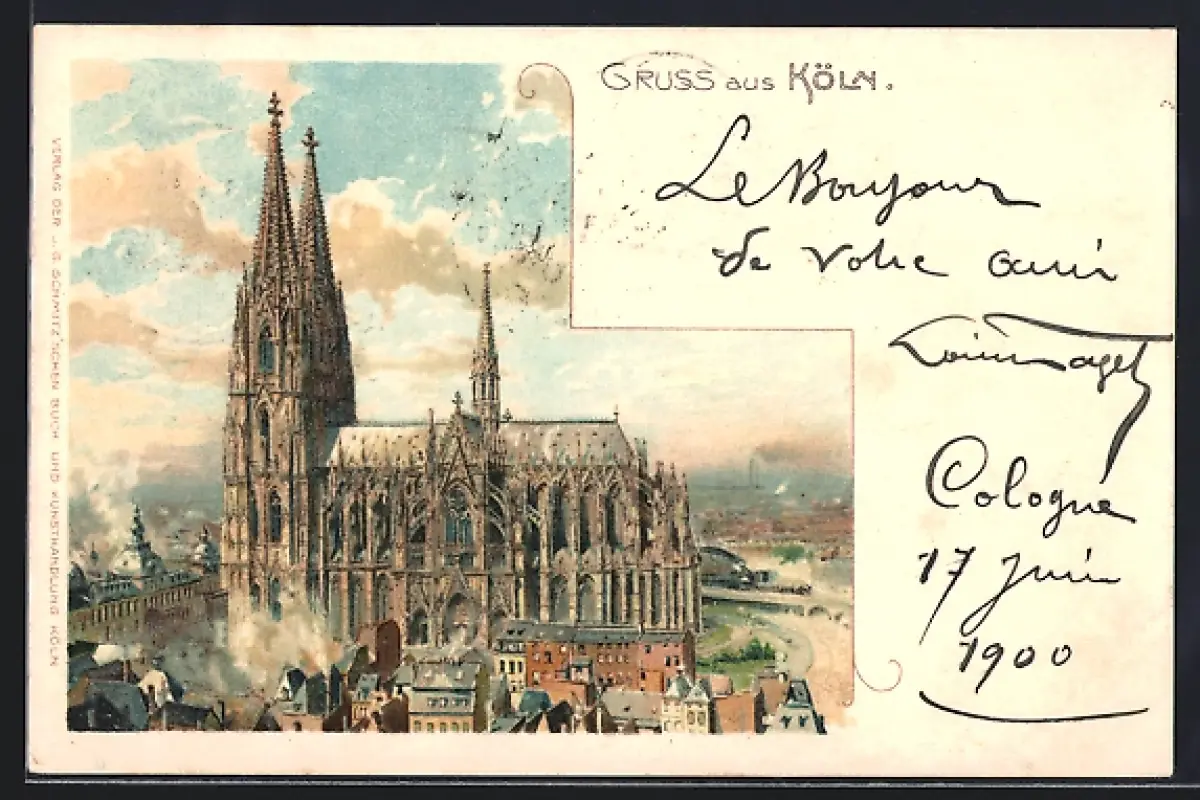 GRUSS aus KÖLN.
Le Bonjour
de votre ami
Cologne
17 Juin
1900
VERLAG DER J. G. SCHMITZ'SCHEN BUCH- UND KUNSTHANDLUNG KÖLN